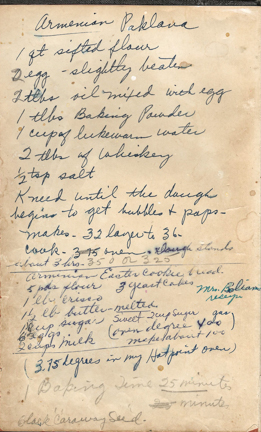 Armenian Paklava
1 qt sifted flour
2 egg - slightly beaten
2 tlbs oil mixed with egg
1 tlbs Baking Powder
1 cup of lukewarm water
2 tlbs of Whiskey
½ tsp salt
Knead until the dough
begins to get bubbles & pops-
makes - 32 layer to 36.
Cook - 375 oven - dough stands
about 3 hrs - 350 or 325
Armenian Easter Cookie bread.
5 lbs flour 3 yeast cakes
1 lb crisco
Mrs.
1 lb butter - melted
cup sugar Sweet gas
6 eggs (oven degree 400)
2 cups milk makes about 100
(375 degrees in my Hotpoint oven)
Baking time 25 minutes
minutes
black caraway seed.